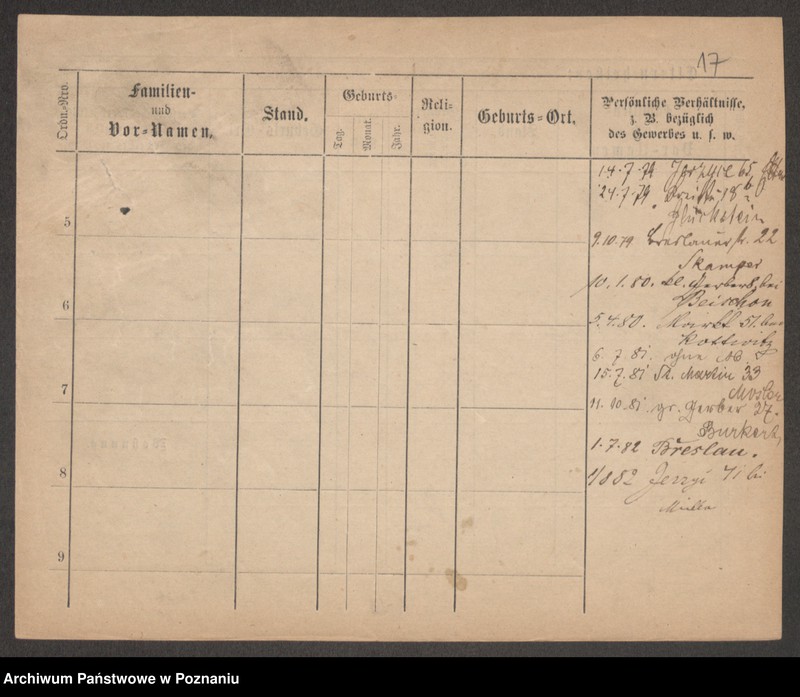 17
Ordn.-Nro.
Familien-
und
Vor-Namen.
Stand.
Geburts-
Tag.
Monat.
Jahr.
Reli-
gion.
Geburts-Ort.
Persönliche Verhältnisse,
z. B. bezüglich
des Gewerbes u. s. w.
14.7.79
24.7.79
Glückstein
5
9.10.79 Breslauerstr. 22
Skamper
10.1.80. kl. Gerber 8, bei
Beischon
6
5.4.80. Markt 51. bei
Kottwitz
6.7.81. ohne
15.7.81 St. Martin 33
Mosler
7
11.10.81. gr. Gerber 27.
Burkert,
1.7.82 Breslau.
8
Jerzyi 71 bei
Müller
9
Archiwum Państwowe w Poznaniu